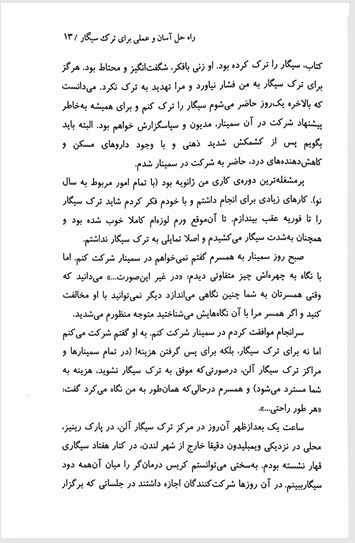 راه حل آسان و عملی برای ترک سیگار / ۱۳
کتاب، سیگار را ترک کرده بود. او زنی بافکر، شگفت‌انگیز و محتاط بود. هرگز
برای ترک سیگار به من فشار نیاورد و مرا تهدید به ترک نکرد. می‌دانست
که بالاخره یک‌روز حاضر می‌شوم سیگار را ترک کنم و برای همیشه به‌خاطر
پیشنهاد شرکت در آن سمینار، مدیون و سپاسگزارش خواهم بود. البته باید
بگویم پس از کشمکش شدید ذهنی و با وجود داروهای مسکن و
کاهش‌دهنده‌های درد، حاضر به شرکت در سمینار شدم.
پرمشغله‌ترین دوره‌ی کاری من ژانویه بود (با تمام امور مربوط به سال
نو). کارهای زیادی برای انجام داشتم و با خودم فکر کردم شاید ترک سیگار
را تا فوریه عقب بیندازم. تا آن‌موقع ورم لوزه‌ام کاملا خوب شده بود و
همچنان به‌شدت سیگار می‌کشیدم و اصلا تمایلی به ترک سیگار نداشتم.
صبح روز سمینار به همسرم گفتم نمی‌خواهم در سمینار شرکت کنم. اما
با نگاه به چهره‌اش چیز متفاوتی دیدم: «در غیر این‌صورت...» می‌دانید که
وقتی همسرتان به شما چنین نگاهی می‌اندازد دیگر نمی‌توانید با او مخالفت
کنید و اگر همسر مرا با آن نگاه‌هایش می‌شناختید متوجه منظورم می‌شدید.
سرانجام موافقت کردم در سمینار شرکت کنم. به او گفتم شرکت می‌کنم
اما نه برای ترک سیگار، بلکه برای پس گرفتن هزینه! (در تمام سمینارها و
مراکز ترک سیگار آلن، درصورتی‌که موفق به ترک سیگار نشوید، هزینه به
شما مسترد می‌شود) و همسرم درحالی‌که همان‌طور به من نگاه می‌کرد گفت:
«هر طور راحتی...».
ساعت یک بعدازظهر آن‌روز در مرکز ترک سیگار آلن، در پارک رینیز،
محلی در نزدیکی ویمبلیدون دقیقا خارج از شهر لندن، در کنار هفتاد سیگاری
قهار نشسته بودم. به‌سختی می‌توانستم کریس درمان‌گر را میان آن‌همه دود
سیگارببینم. در آن روزها شرکت‌کنندگان اجازه داشتند در جلساتی که برگزار